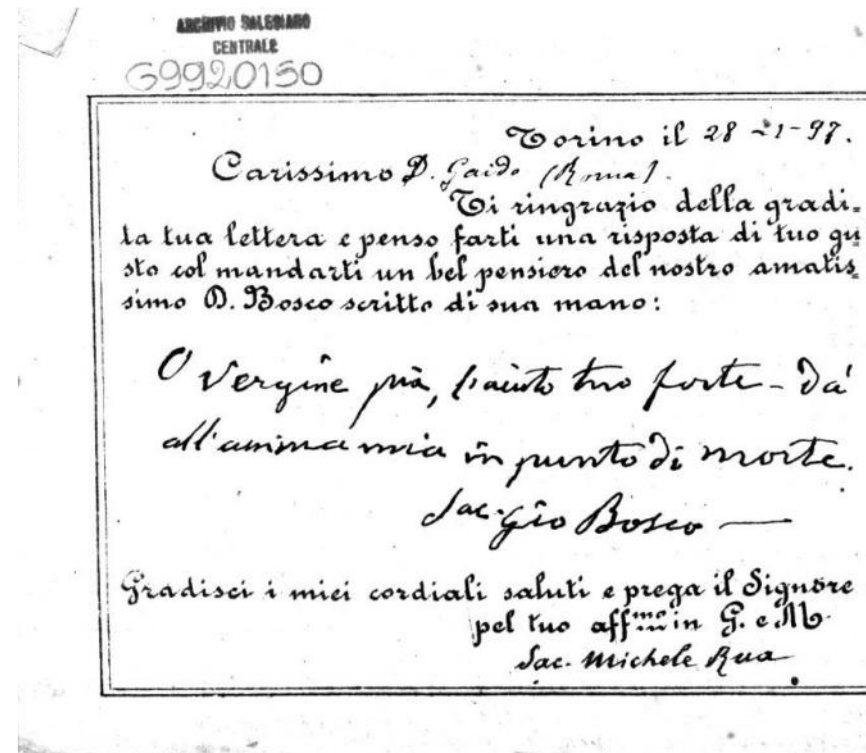 ARCHIVIO SALESIANO
CENTRALE
G9920150
Torino il 28-1-97.
Carissimo D. Gaido (Roma).
Ti ringrazio della gradi=
ta tua lettera e penso farti una risposta di tuo gu=
sto col mandarti un bel pensiero del nostro amatis=
simo D. Bosco scritto di sua mano:
O Vergine pia, l'aiuto tuo forte - Dà
all'anima mia in punto di morte.
Sac. Gio Bosco
Gradisci i miei cordiali saluti e prega il Signore
pel tuo aff.mo in G. e M.
Sac. Michele Rua